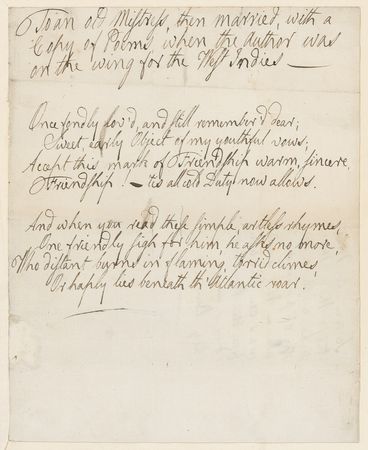 To an old Mistress, then married, with a
Copy of Poems, when the author was
on the wing for the West Indies —
Once fondly lov'd, and still remember'd dear;
Sweet, early Object of my youthful vows;
Accept this mark of Friendship warm, sincere
Friendship! — 'tis all cold Duty now allows.
And when you read these simple, artless rhymes,
One friendly sigh for him, he asks no more,
Who distant burns in flaming, torrid climes,
Or haply lies beneath th' Atlantic roar.